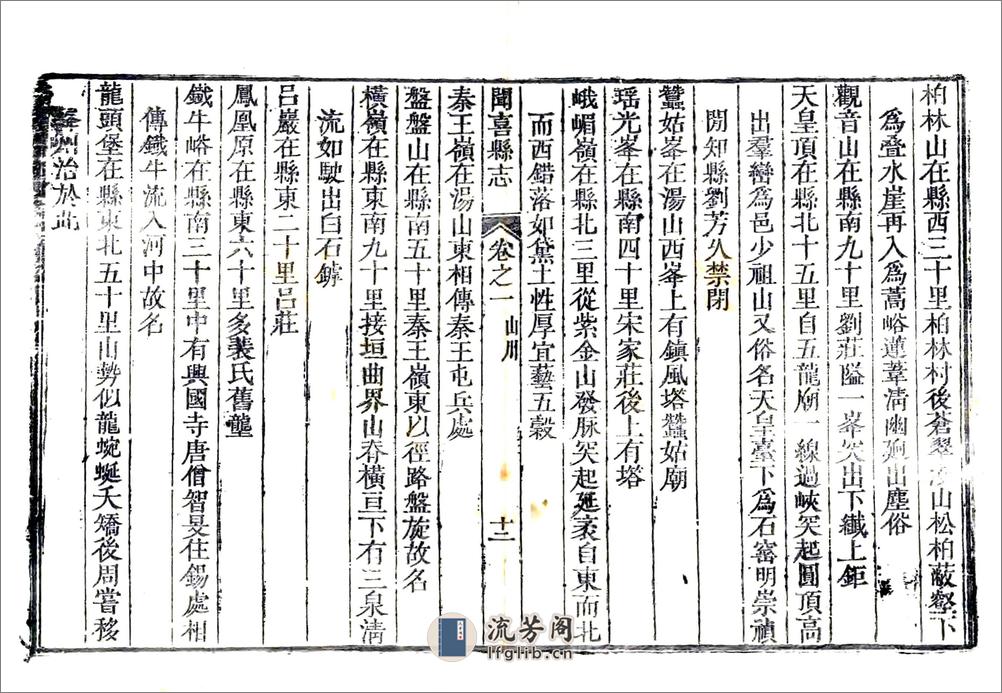 柏林山在縣西三十里柏林村後蒼翠滿山松柏蔽壑下
爲疊水崖再入爲蒿峪蓮葦淸幽逈出塵俗
觀音山在縣南九十里劉莊隘一峯突出下纖上鉅
天皇頂在縣北十五里自五龍廟一線過峽突起圓頂高
出羣巒爲邑少祖山又俗名天皇臺下爲石窰明崇禎
閒知縣劉芳久禁閉
蠶姑峯在湯山西峯上有鎮風塔蠶姑廟
瑶光峯在縣南四十里宋家莊後上有塔
峨嵋嶺在縣北三里從紫金山發脉突起延袤自東而北
而西錯落如黛土性厚宜藝五穀
聞喜縣志 卷之一 山川 十二
秦王嶺在湯山東相傳秦王屯兵處
盤盤山在縣南五十里秦王嶺東以徑路盤旋故名
橫嶺在縣東南九十里接垣曲界山脊橫亘下有三泉淸
流如駛出白石罅
呂巖在縣東二十里呂莊
鳳凰原在縣東六十里多裴氏舊壟
鐵牛峪在縣南三十里中有興國寺唐僧智旻住錫處相
傳鐵牛流入河中故名
龍頭堡在縣東北五十里山勢似龍蜿蜒夭矯後周嘗移
絳州治於此
流芳阁
lfglib.cn